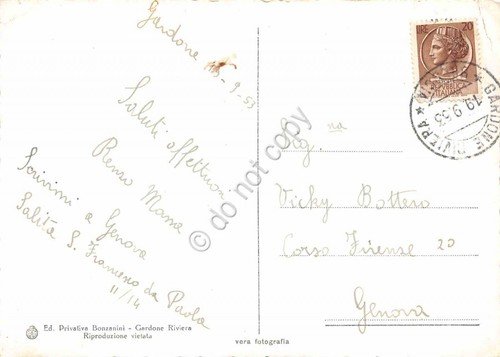 Gardone
18-9-53
Saluti affettuosi
Renzo Massa
Scrivimi a Genova
Salita S. Francesco da Paola
11/14
Sig.na
Vicky Bottero
Corso Firenze 20
Genova
LIRE 20
GARDONE RIVIERA
19.9.53
do not copy
Ed. Privativa Bonzanini - Gardone Riviera
Riproduzione vietata
vera fotografia